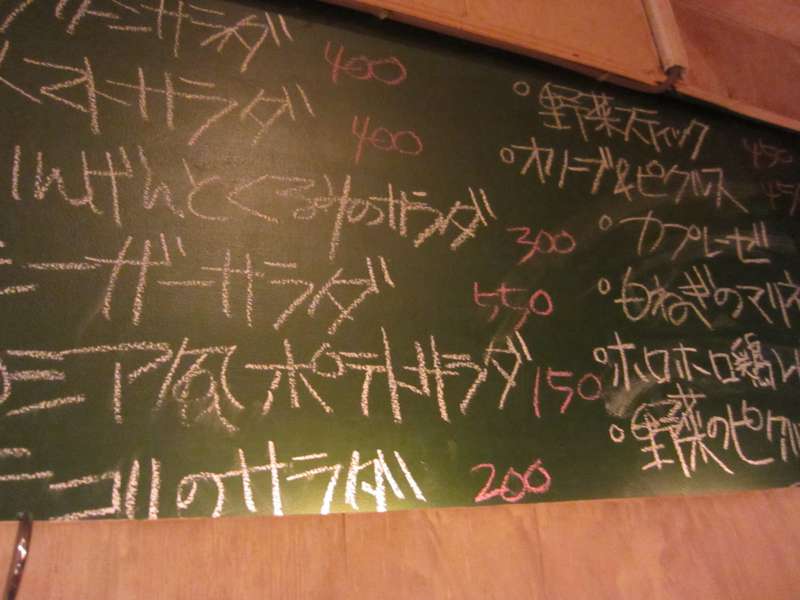 サラダ 400
トマトサラダ 400
いんげんとくるみのサラダ 300
シーザーサラダ 550
ア風ポテトサラダ 150
のサラダ 200
野菜スティック 450
オリーブ&ピクルス 45
カプレーゼ
白ねぎのマリネ
ホロホロ鶏
野菜のピクル